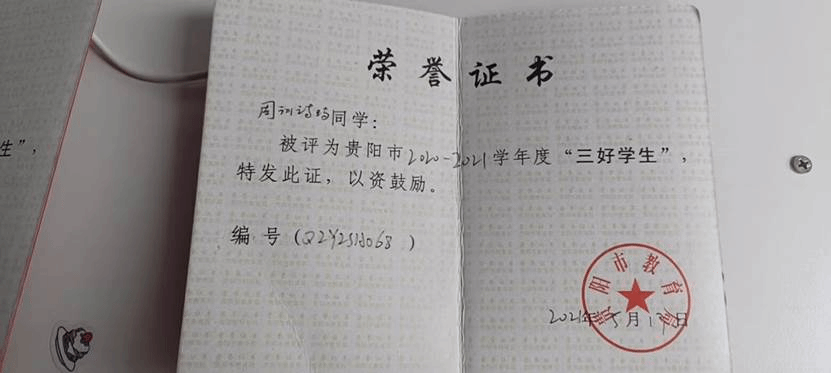 生”，
荣誉证书
周训诗琦同学：
被评为贵阳市2020-2021学年度“三好学生”，
特发此证，以资鼓励。
编号（QZY2SH068）
贵阳市教育局
2021年5月17日